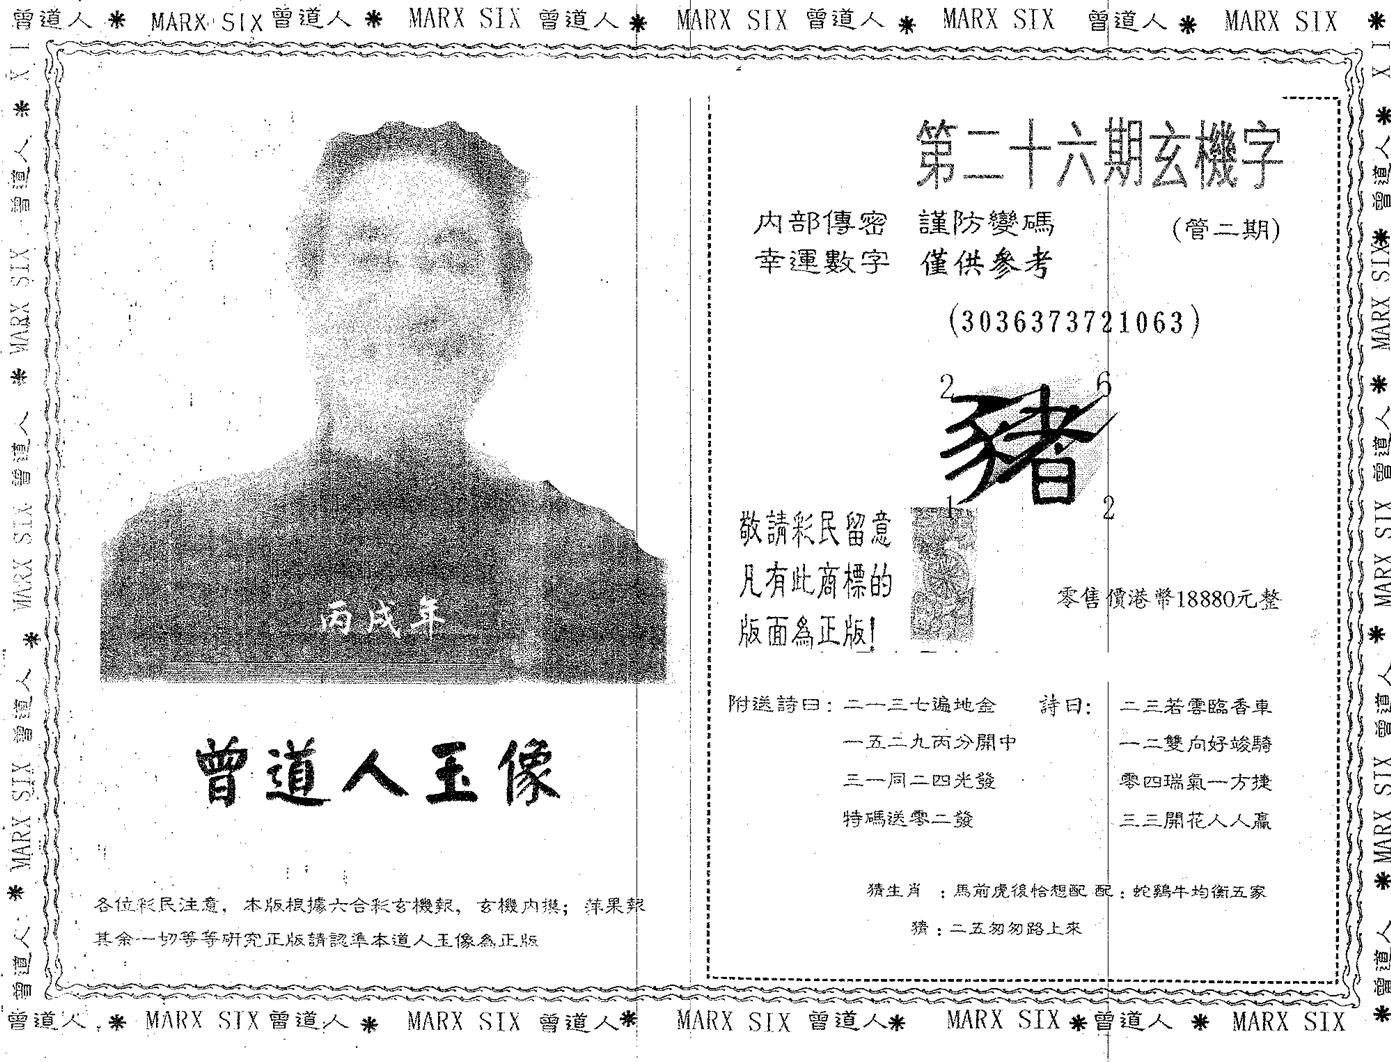 曾道人 * MARX SIX 曾道人 * MARX SIX 曾道人 * MARX SIX 曾道人 * MARX SIX 曾道人 * MARX SIX *
第二十六期玄機字
内部傳密 謹防變碼 (管二期)
幸運數字 僅供參考
(3036373721063)
2 6
豬
1 2
敬請彩民留意
凡有此商標的
版面為正版!
零售價港幣18880元整
丙戌年
曾道人玉像
各位彩民注意，本版根據六合彩玄機報，玄機内摸；苹果報
其余一切等等研究正版請認準本道人玉像為正版
附送詩曰：二一三七遍地金
一五二九丙分開中
三一同二四光發
特碼送零二發
詩曰：二三若雲臨香車
一二雙向好竣騎
零四瑞氣一方捷
三三開花人人贏
猜生肖 ：馬前虎後恰想配 配：蛇鷄牛均衡五家
猜：二五匆匆路上來
曾道人 * MARX SIX 曾道人 * MARX SIX 曾道人 * MARX SIX 曾道人 * MARX SIX * 曾道人 * MARX SIX *